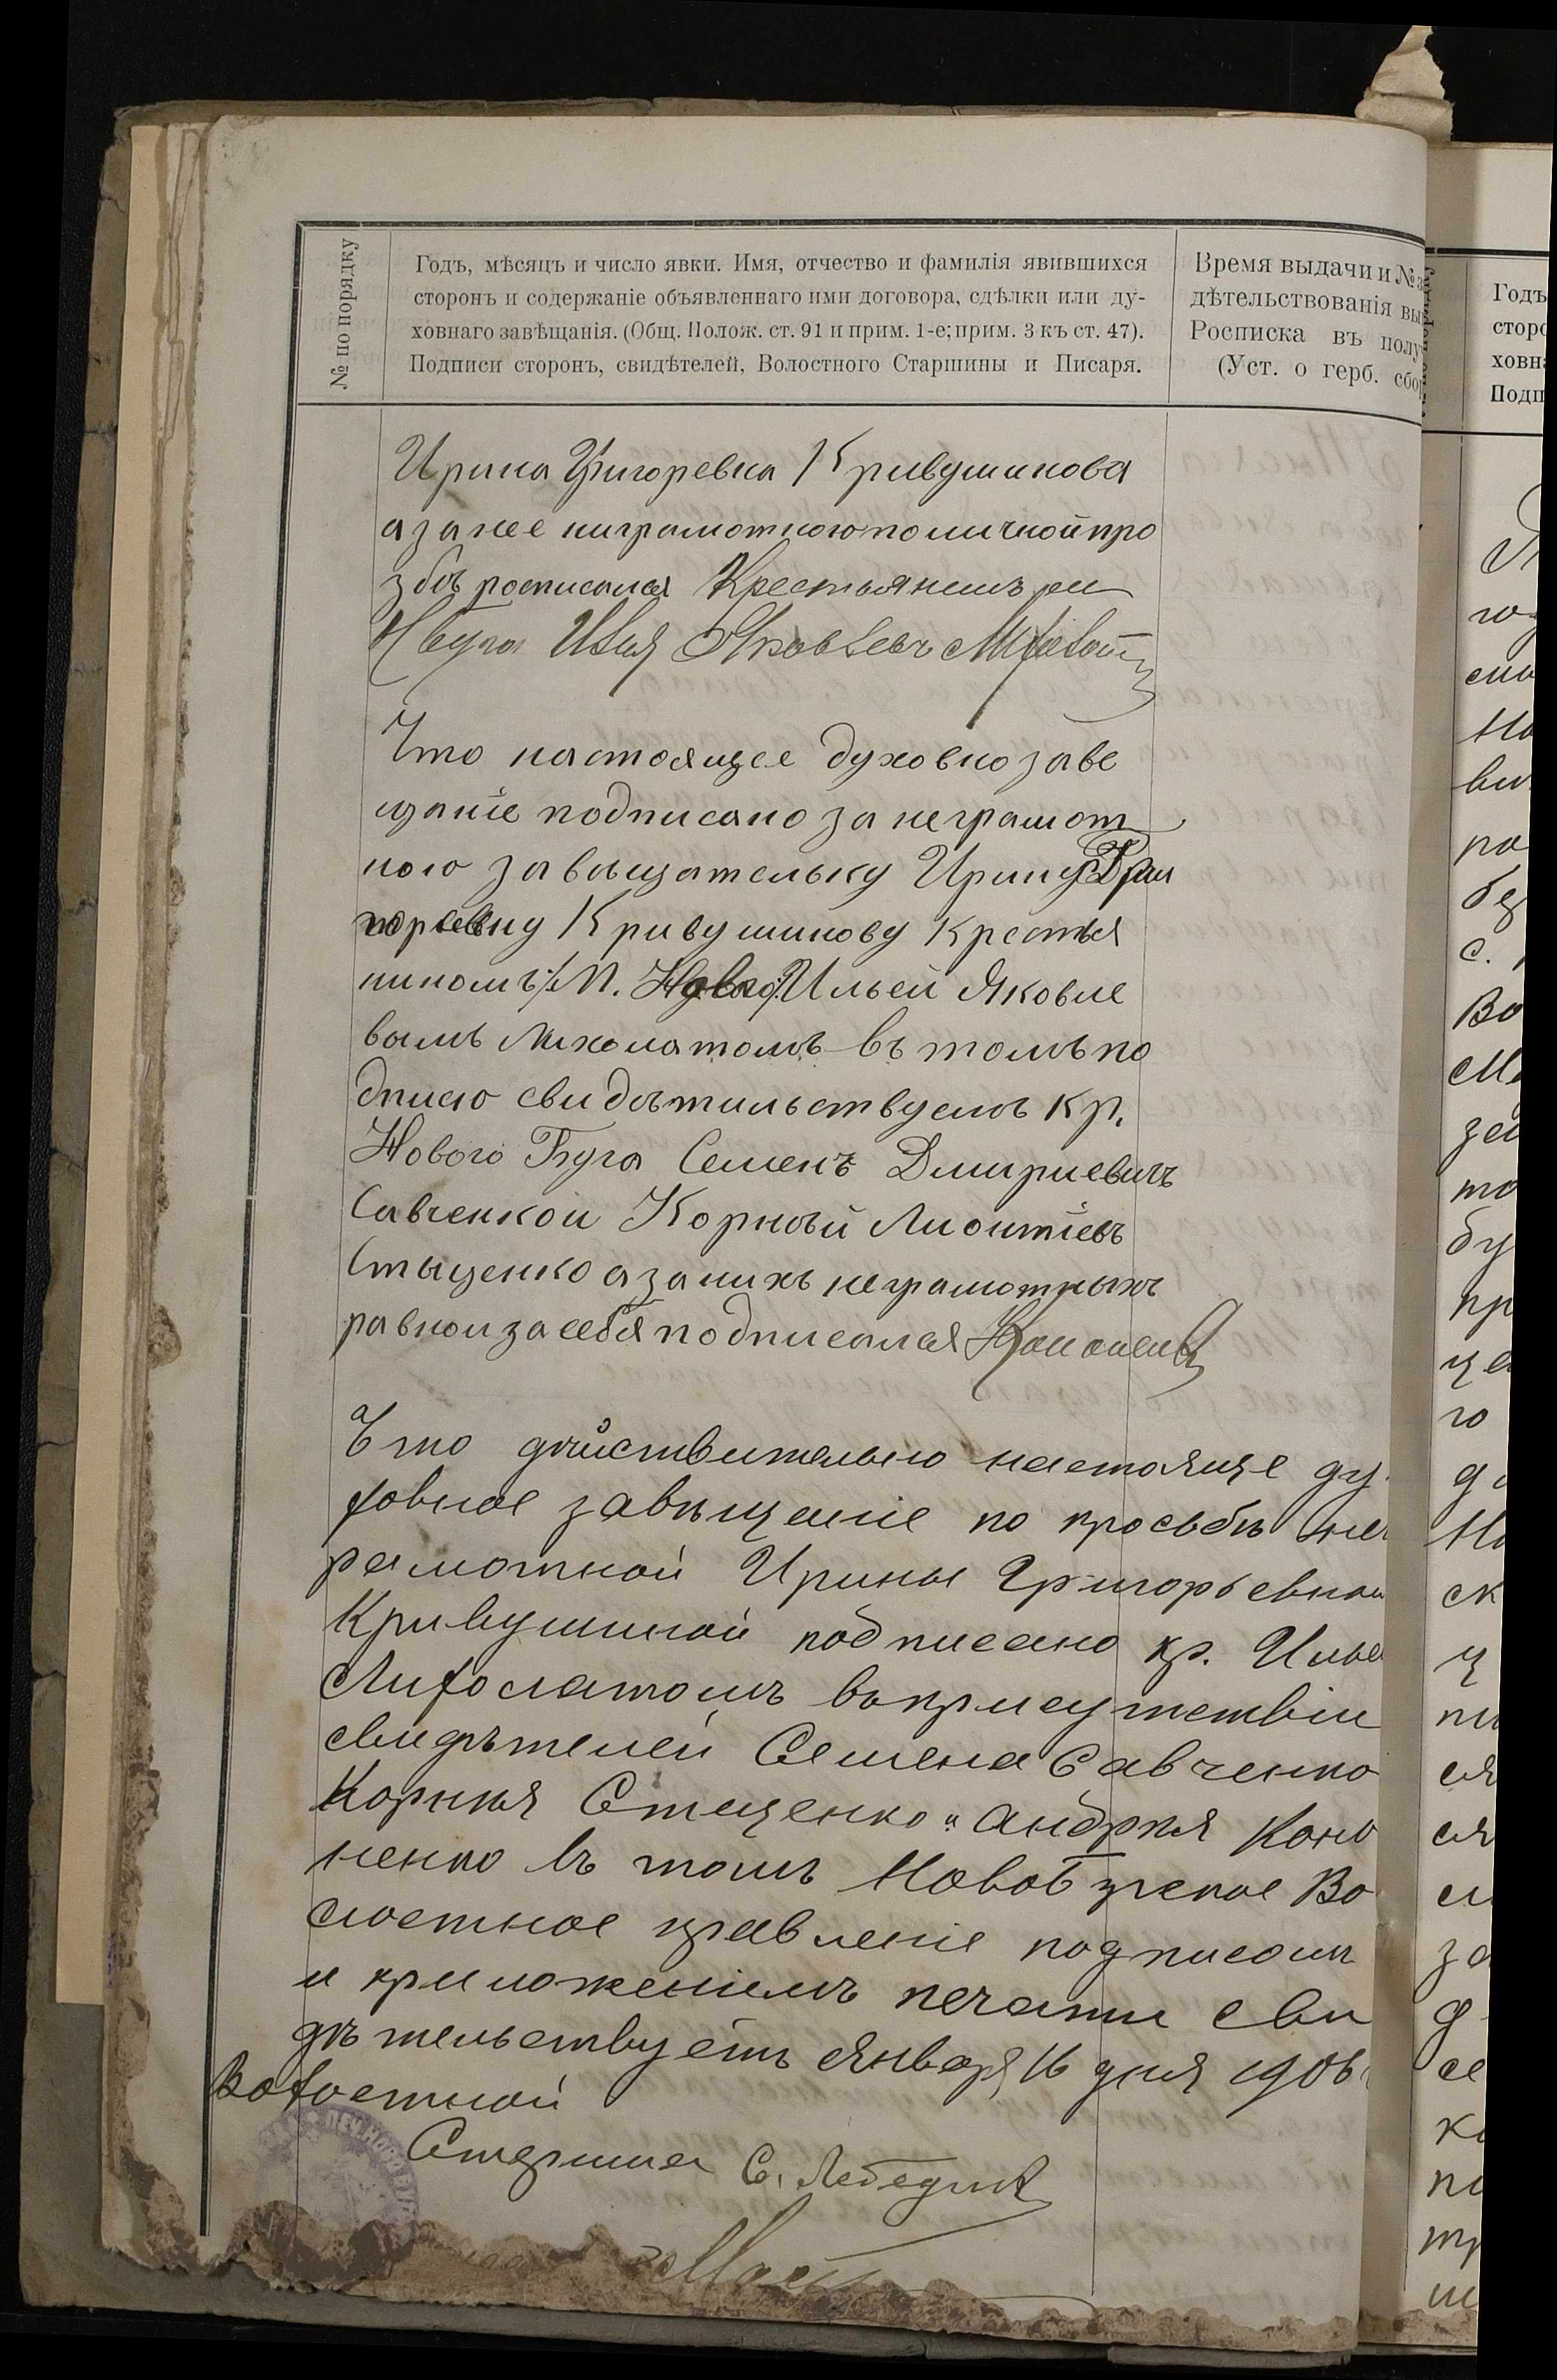 № по порядку
Годъ, мѣсяцъ и число явки. Имя, отчество и фамилія явившихся
сторонъ и содержаніе объявленнаго ими договора, сдѣлки или ду-
ховнаго завѣщанія. (Общ. Полож. ст. 91 и прим. 1-е; прим. 3 къ ст. 47).
Подписи сторонъ, свидѣтелей, Волостного Старшины и Писаря.
Время выдачи и №
дѣтельствованія вы
Росписка въ полу
(Уст. о герб. сбор
Ирина Григоревна Кривушинова
а за нее ниграмотною по личной про
збѣ росписался Крестьянинъ
Н Буга Илья Яковлевъ
Что настоящее духовно заве
щаніе подписано за неграмот
ною завѣщательку Ирину Гри
горьевну Кривушинову Крестья
ниномъ М. Ильей Яковле
вымъ Лихолатомъ въ томъ по
дписю свидѣтильствуемъ Кр.
Нового Буга Семенъ Дмитриевичъ
Савченко и Корнѣй Лионтіевъ
Стыценко а за нихъ неграмотныхъ
равно и за себя подписался
Что дѣйствительно настоящее ду
ховное завѣщаніе по просьбѣ нег
рамотной Ирины Григорьевной
Кривушиной подписано кр. Ильей
Лихолатомъ въ присутствіи
свидѣтелей Семена Савченко
Корнѣя Стеценко и Андрѣя Коно
ненко въ томъ Новобугское Во
лостное правленіе подписомъ
и приложеніемъ печати сви
дѣтельствуетъ Января 16 дня 1906
Волостной
Старшина С. Лебедик
Годъ
сторо
ховна
Подп